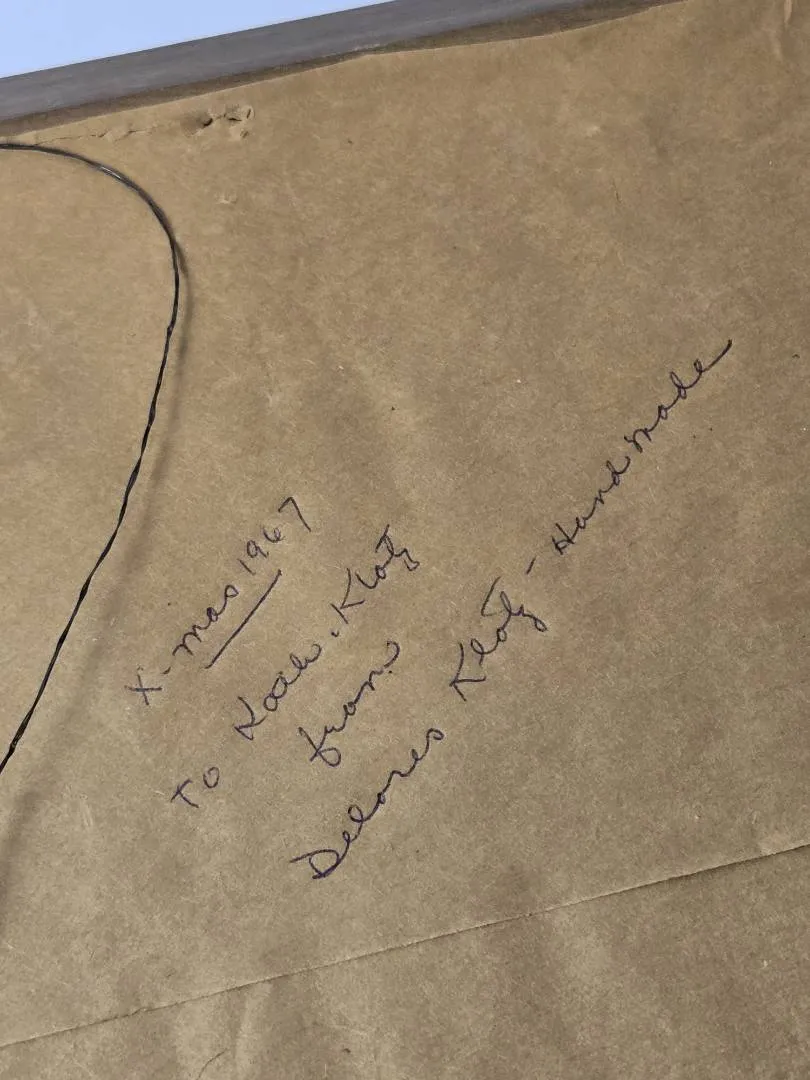 X-mas 1967
To Klotz
from
Delores Klotz - Handmade